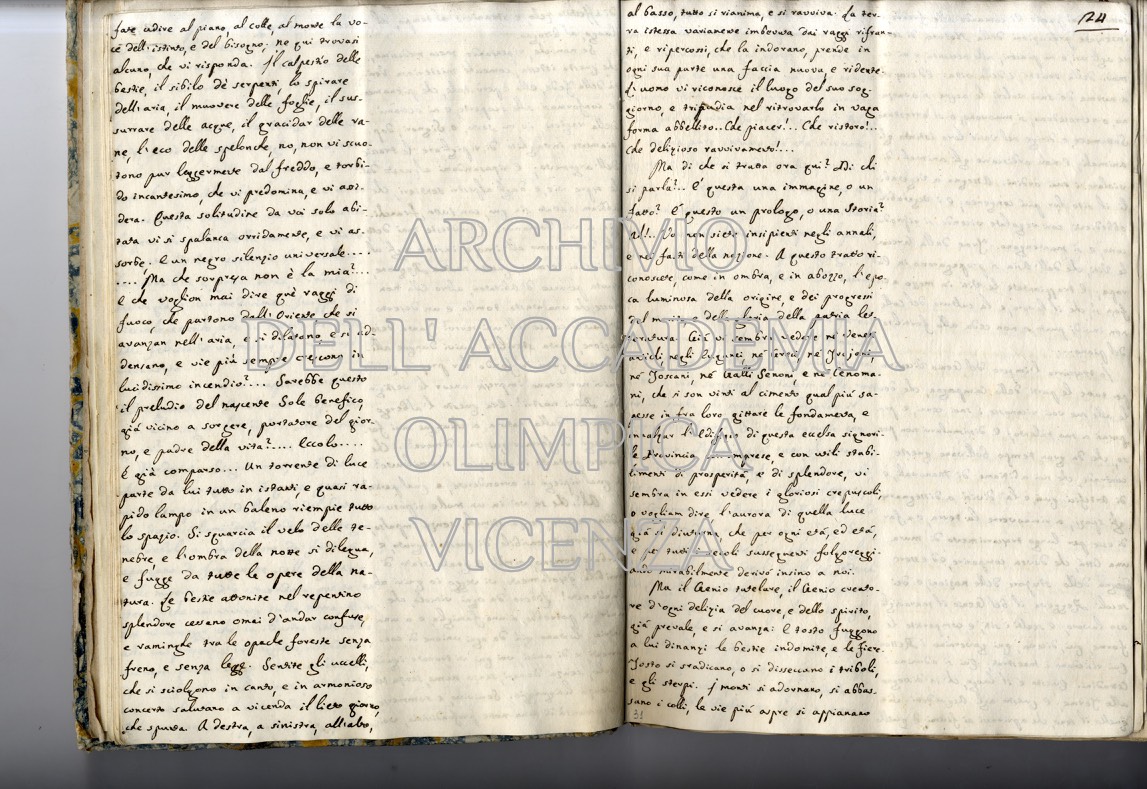 fate udire al piano, al colle, al monte la vo-
ce dell'istinto, e del bisogno; ne qui trovasi
alcuno, che vi risponda. Il calpestio delle
bestie, il sibilo de' serpenti, lo spirare
dell'aria, il muovere delle foglie, il sus-
surrare delle acque, il gracidar delle ra-
ne, l'eco delle spelonche, no, non vi scuo-
tono pur leggermente dal freddo, e torbi-
do incantesimo, che vi predomina, e vi assi-
dera. Questa solitudine da voi solo abi-
tata vi si spalanca orridamente, e vi as-
sorbe. E un negro silenzio universale....
.... Ma che sorpresa non è la mia?...
E che voglion mai dire que' raggi di
fuoco che partono dall'Oriente che si
avanzan nell'aria, e si dilatano e si ad-
densano, e vie più sempre crescono in
lucidissimo incendio?... Sarebbe questo
il preludio del nascente Sole benefico,
già vicino a sorgere, portatore del gior-
no, e padre della vita?.... Eccolo....
È già comparso... Un torrente di luce
parte da lui tutto in istanti, e quasi ra-
pido lampo in un baleno riempie tutto
lo spazio. Si squarcia il velo delle te-
nebre, e l'ombra della notte si dilegua,
e fugge da tutte le opere della na-
tura. Le bestie attonite nel repentino
splendore cessano omai d'andar confuse,
e raminghe tra le opache foreste senza
freno, e senza legge. Sentite gli uccelli,
che si sciolgono in canto, e in armonioso
concerto salutano a vicenda il lieto giorno,
che spunta. A destra, a sinistra, all'alto,
124
al basso, tutto si rianima, e si ravviva. La ter-
ra istessa variamente imbevuta dai raggi rifran-
ti, e ripercossi, che la indorano, prende in
ogni sua parte una faccia nuova, e ridente.
L'uomo vi riconosce il luogo del suo sog-
giorno, e tripudia nel ritrovarlo in vaga
forma abbellito.. Che piacer!... Che ristoro!..
Che delizioso ravvivamento!...
Ma di che si tratta ora qui? Di chi
si parla?.. È questa una immagine, o un
fatto? È questo un prologo, o una Storia?
Voi non siete insipienti negli annali,
e nei fasti della nazione. A questo tratto ri-
conoscete, come in ombra, e in abozzo, l'epo-
ca luminosa della origine, e dei progressi
del merito e della gloria della patria let-
teratura. Già vi sembra vedere ne' Veneti
né Toscani, né Galli Senoni, e ne' Cenoma-
ni, che si son vinti al cimento qual più sa-
pesse in fra loro gittare le fondamenta, e
innalzar l'Edifizio di questa eccelsa signori-
le Provincia con imprese, e con utili stabi-
limenti di prosperità, e di splendore, vi
sembra in essi vedere i gloriosi crepuscoli,
o vogliam dire l'aurora di quella luce
già sì diuturna, che per ogni età, ed età,
e per tutti i secoli susseguenti folgoreggi-
ante mirabilmente derivò insino a noi.
Ma il Genio tutelare, il Genio creato-
re d'ogni delizia del cuore, e dello spirito,
già prevale, e si avanza: E tosto fuggono
a lui dinanzi le bestie indomite, e le fiere.
Tosto si sradicano, o si disseccano i triboli,
e gli sterpi. I monti si adornano, si abbas-
sano i colli, le vie più aspre si appianano
31
ARCHIVIO
DELL'ACCADEMIA
OLIMPICA
VICENZA